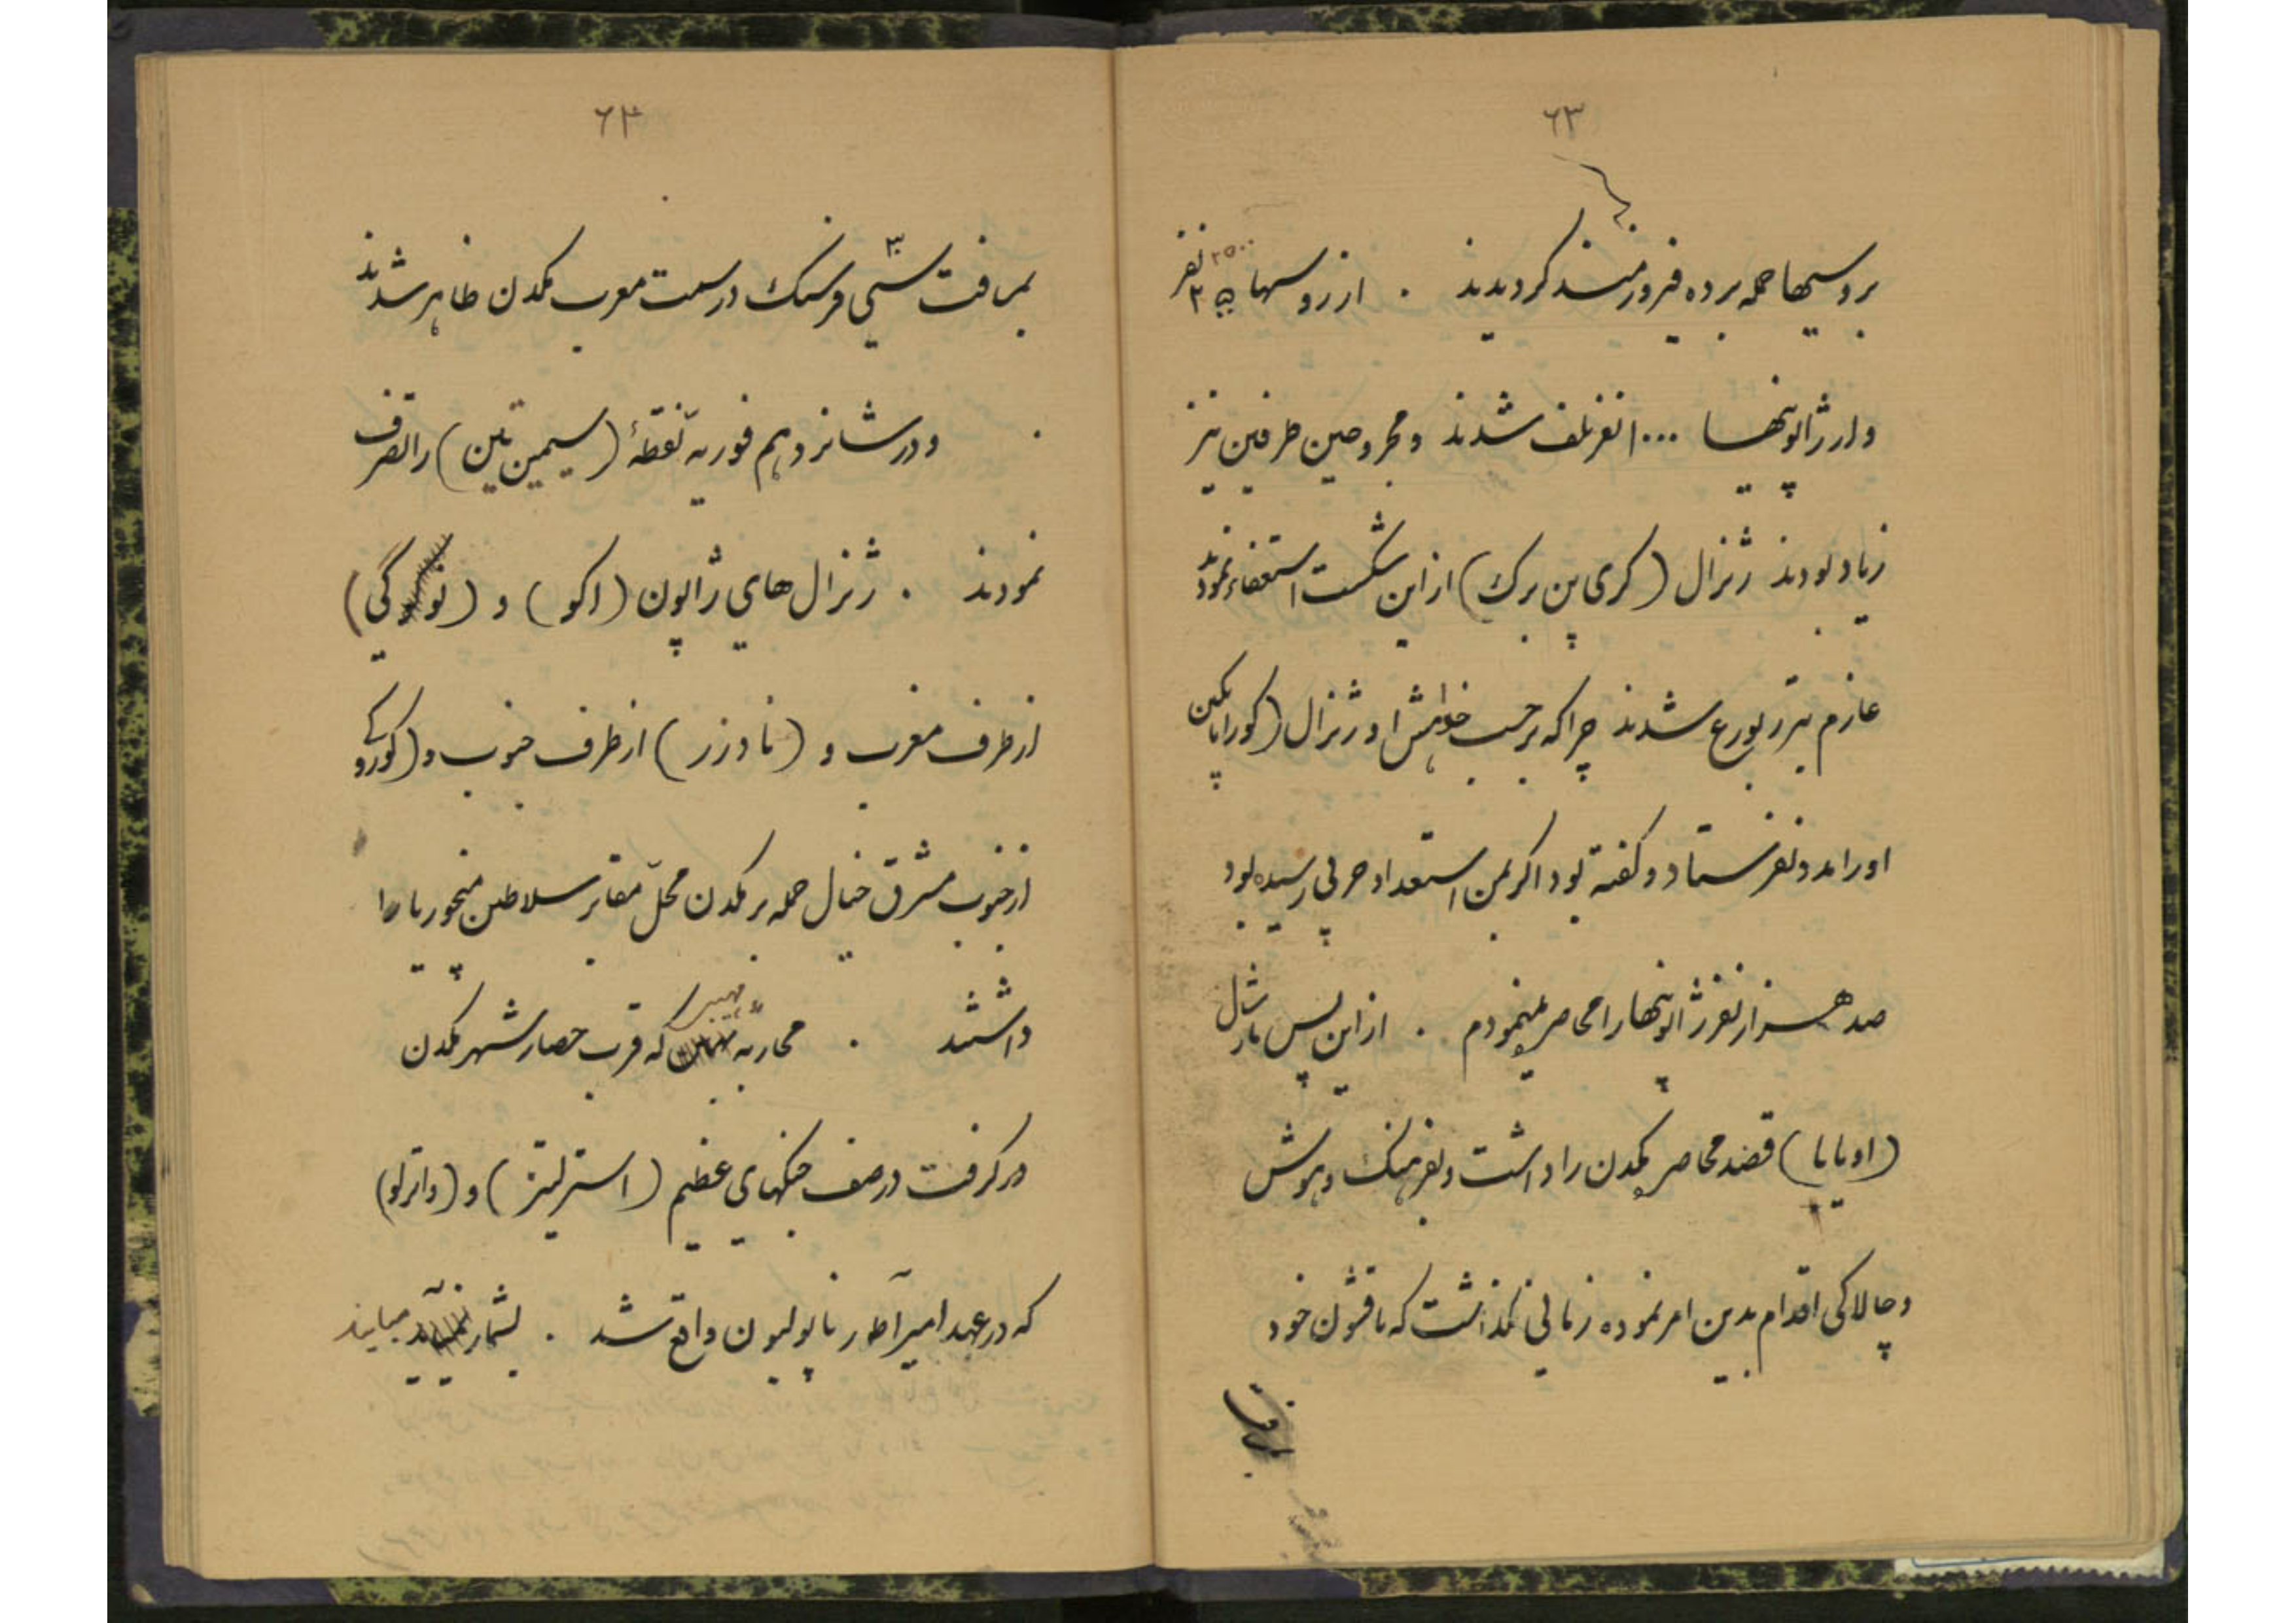 ۶۳
بروسیها حمله برده فیروزمند کردیدند . از روسها ۲۵۰۰ نفر
و از ژاپونیها ۱۰۰۰ نفر تلف شدند و مجروحین طرفین نیز
زیاد بودند ژنرال (کری پن برک) از این شکست استعفاء نموده
عازم پترزبورغ شدند چرا که بر حسب خواهش او ژنرال (کوراپاتکین
او را مدد نفرستاد و گفته بود اگر بمن استعداد حربی رسیده بود
صد هزار نفر ژاپونیها را محاصره مینمودم . از این پس مارشال
(اویاما) قصد محاصره مکدن را داشت و بفرهنک و هوش
و چالاکی اقدام بدین امر نموده زمانی نگذشت که با قشون خود
بمسافت
۶۴
بمسافت سی فرسنک در سمت مغرب مکدن ظاهر شدند
. و در شانزدهم فوریه نقطهٔ (سیمین تین) را تصرف
نمودند . ژنرال های ژاپون (اکو) و (نوگی)
از طرف مغرب و (نادزر) از طرف جنوب و (کوروکی
از جنوب مشرق خیال حمله بر مکدن محلّ مقابر سلاطین منچوریا را
داشتند . محاربهٔ مهیبی که قرب حصار شهر مکدن
در گرفت در صف جنگهای عظیم (استرلیتز) و (واترلو)
که در عهد امپراطور ناپولیون واقع شد . بشمار میاید